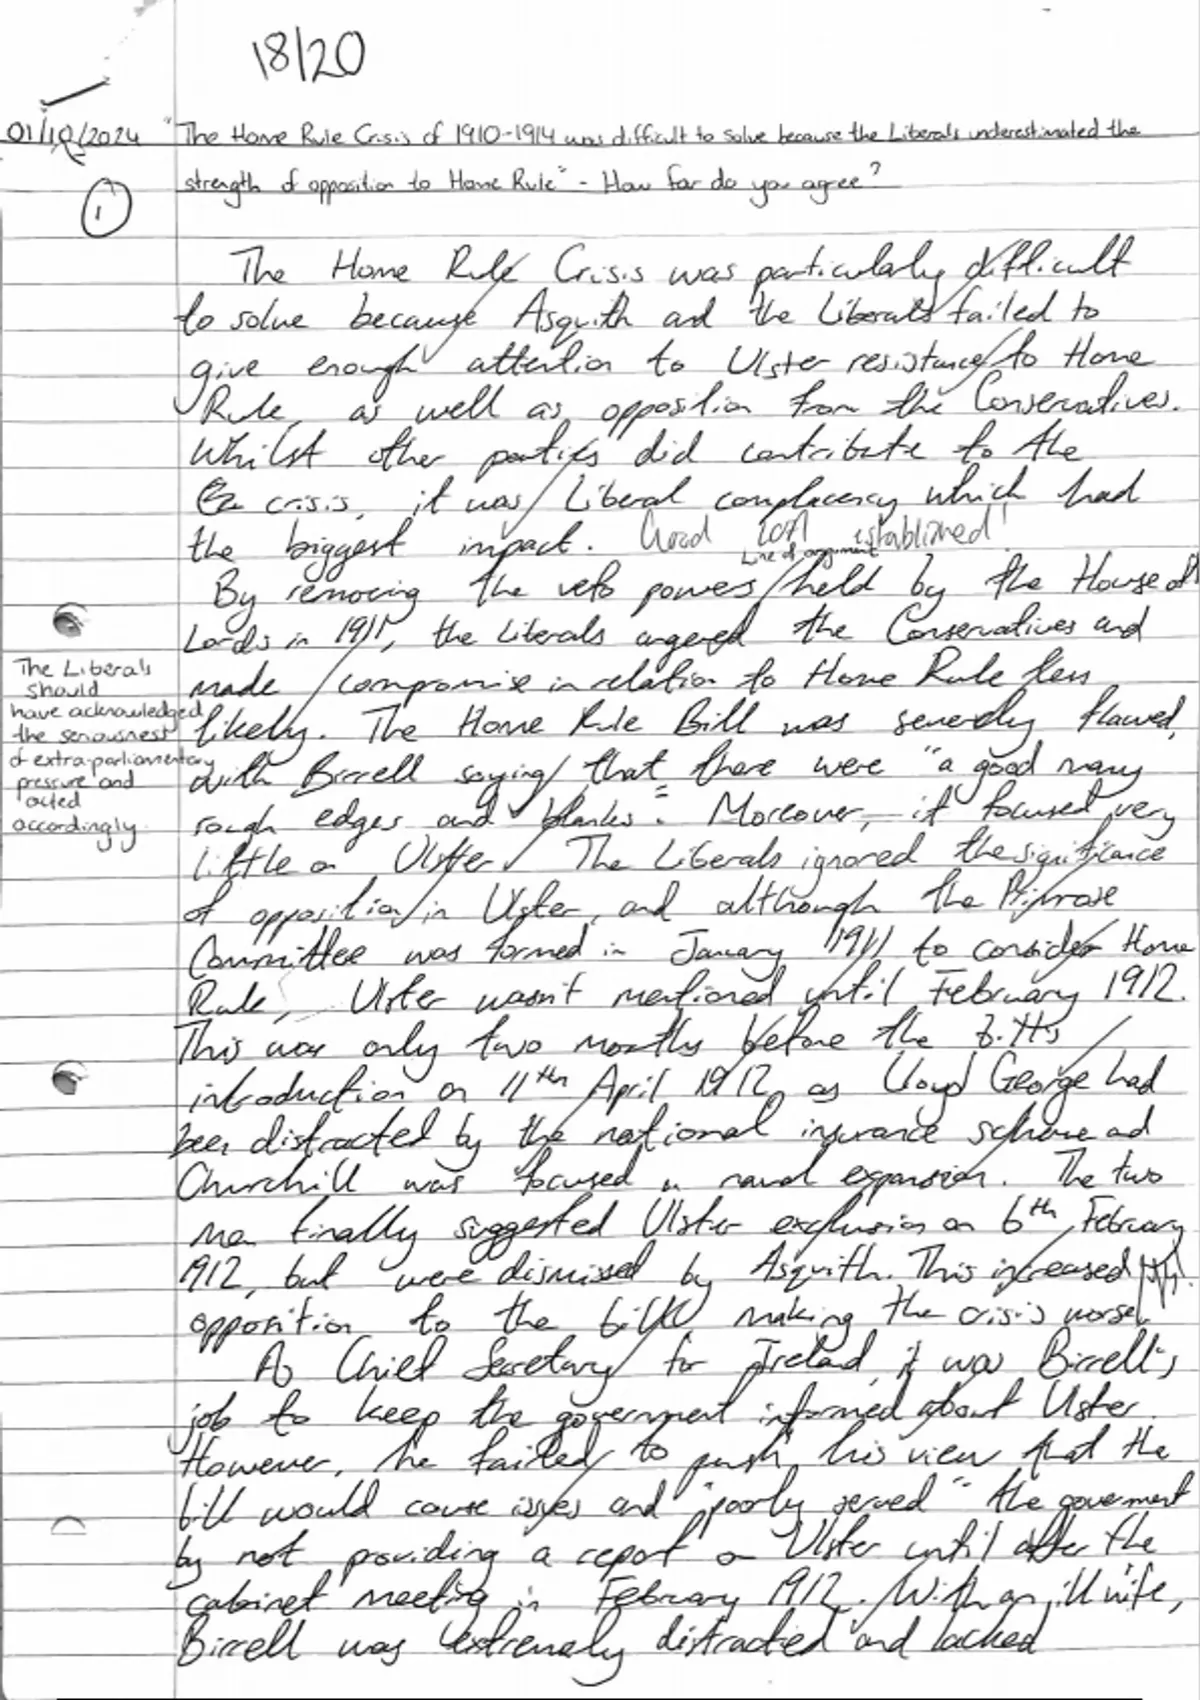 18/20
01/10/2024 "The Home Rule Crisis of 1910-1914 was difficult to solve because the Liberals underestimated the
strength of opposition to Home Rule" - How far do you agree?
1
The Home Rule Crisis was particularly difficult
to solve because Asquith and the Liberals failed to
give enough attention to Ulster resistance to Home
Rule, as well as opposition from the Conservatives.
Whilst other parties did contribute to the
crisis, it was Liberal complacency which had
the biggest impact. Good LOA established!
Line of argument
By removing the veto powers held by the House of
Lords in 1911, the Liberals angered the Conservatives and
made compromise in relation to Home Rule less
likely. The Home Rule Bill was severely flawed,
with Birrell saying that there were "a good many
rough edges and blanks". Moreover, it focused very
little on Ulster. The Liberals ignored the significance
of opposition in Ulster, and although the Primrose
Committee was formed in January 1911 to consider Home
Rule, Ulster wasn't mentioned until February 1912.
This was only two months before the bill's
introduction on 11th April 1912, as Lloyd George had
been distracted by the national insurance scheme and
Churchill was focused on naval expansion. The two
men finally suggested Ulster exclusion on 6th February
1912, but were dismissed by Asquith. This increased
opposition to the bill, making the crisis worse.
The Liberals
should
have acknowledged
the seriousness
of extra-parliamentary
pressure and
acted
accordingly.
As Chief Secretary for Ireland, it was Birrell's
job to keep the government informed about Ulster.
However, he failed to push his view that the
bill would cause issues and "poorly served" the goverment
by not providing a report on Ulster until after the
cabinet meeting in February 1912. With an ill wife,
Birrell was extremely distracted and lacked